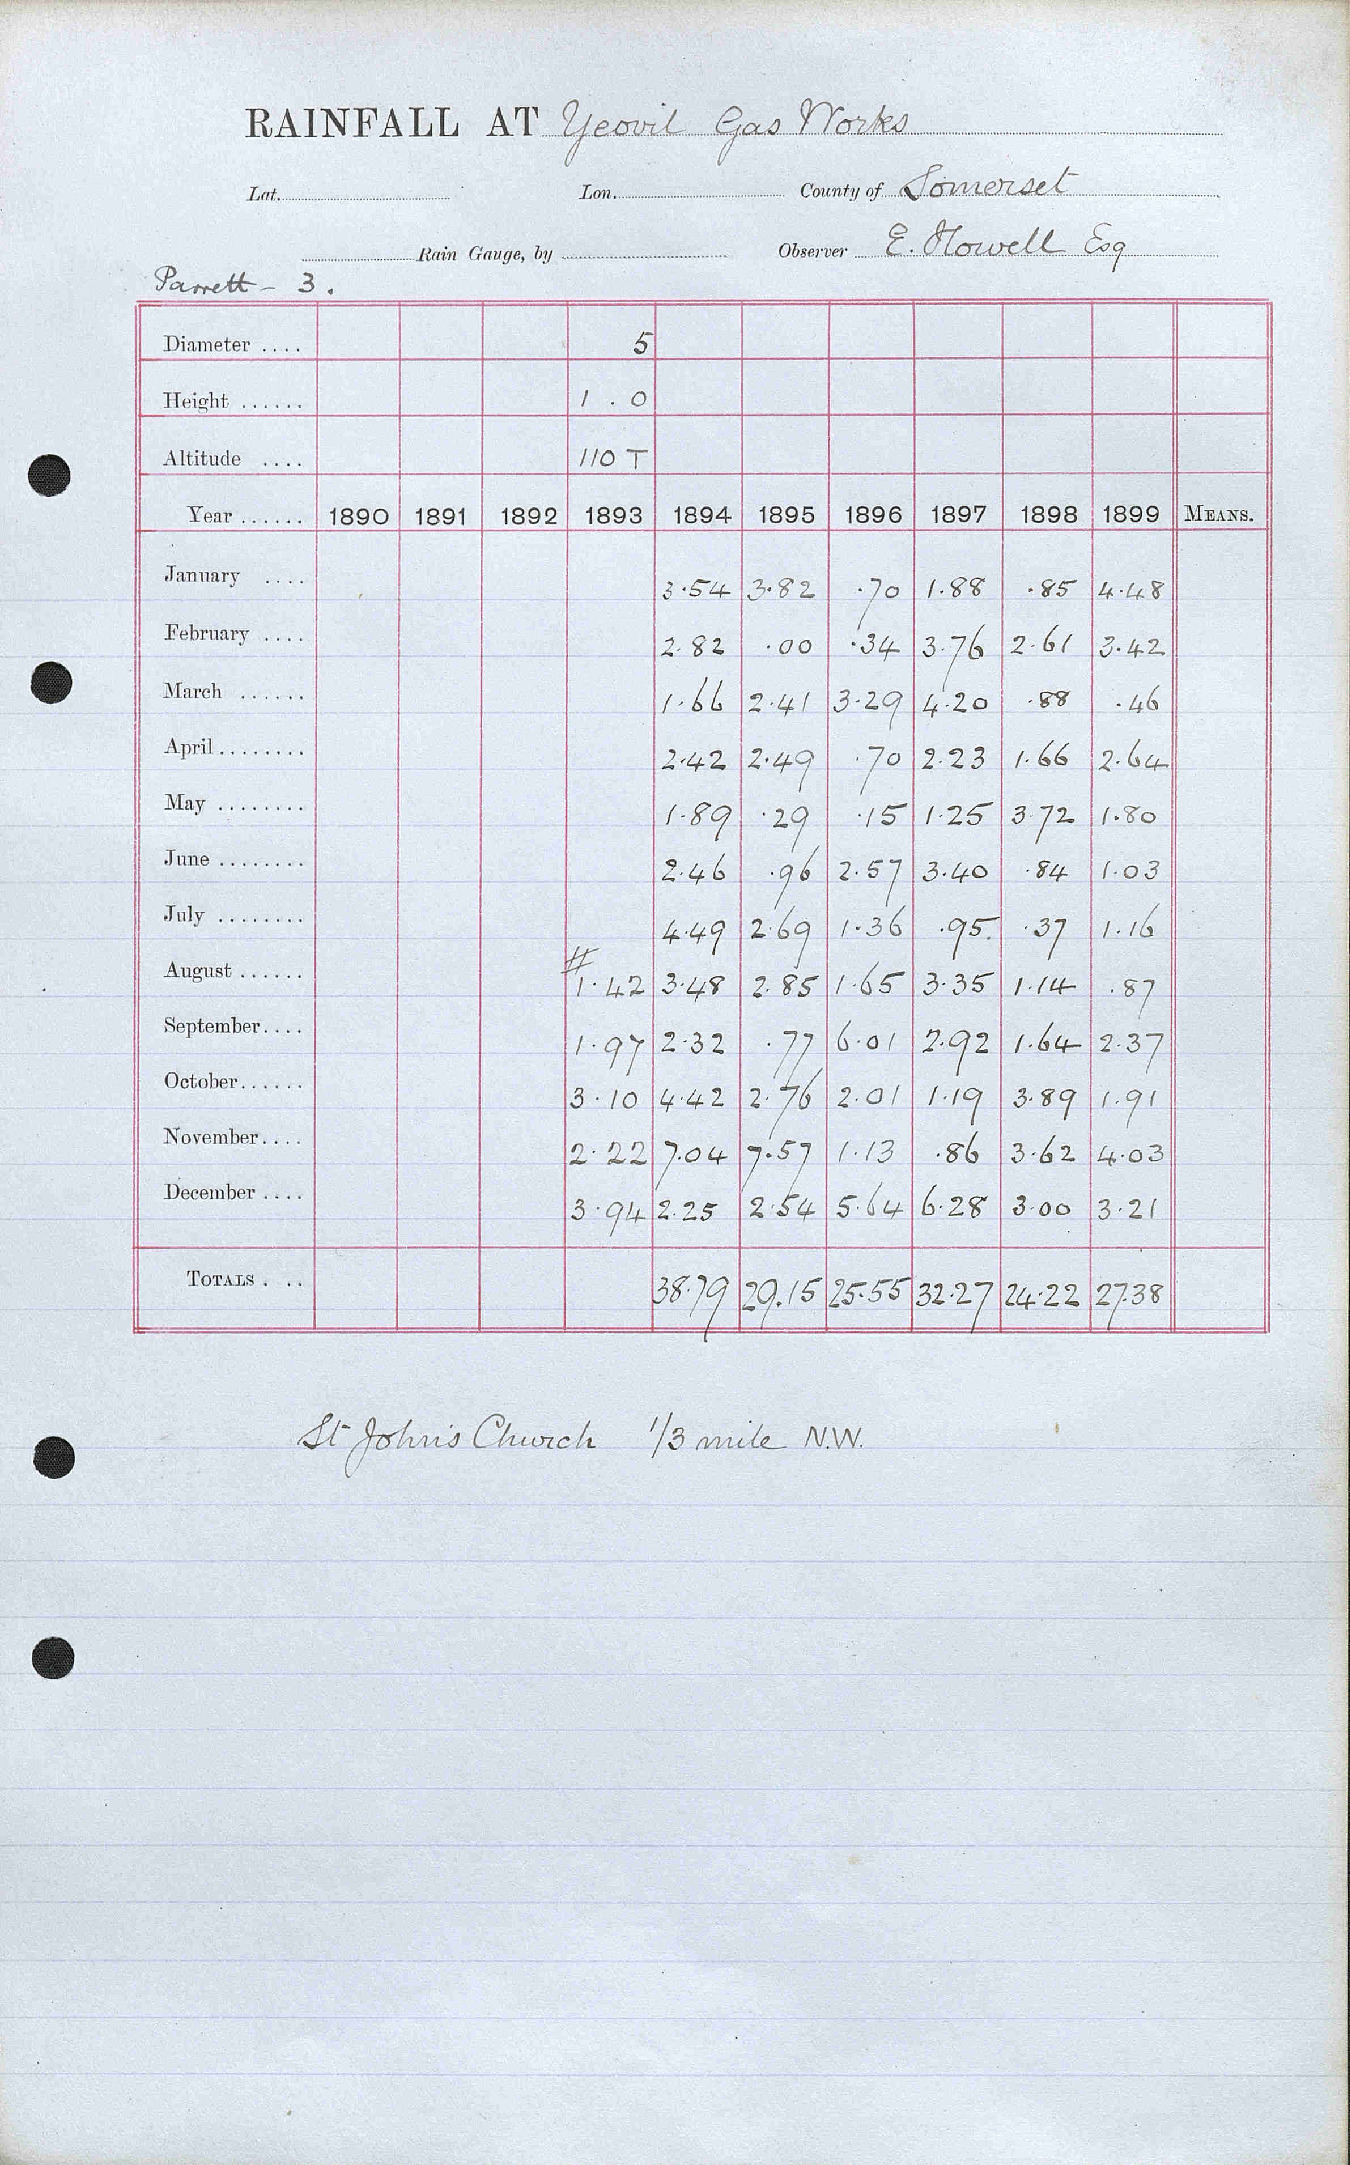 RAINFALL AT Yeovil Gas Works
Lat. Lon. County of Somerset
Rain Gauge, by Observer E. Howell Esq
Parrett - 3.
Diameter .... 5
Height ...... 1 . 0
Altitude .... 110 T
Year ...... 1890 1891 1892 1893 1894 1895 1896 1897 1898 1899 MEANS.
January .... 3.54 3.82 .70 1.88 .85 4.48
February .... 2.82 .00 .34 3.76 2.61 3.42
March ...... 1.66 2.41 3.29 4.20 .88 .46
April ........ 2.42 2.49 .70 2.23 1.66 2.64
May ........ 1.89 .29 .15 1.25 3.72 1.80
June ........ 2.46 .96 2.57 3.40 .84 1.03
July ........ 4.49 2.69 1.36 .95 .37 1.16
August ...... # 1.42 3.48 2.85 1.65 3.35 1.14 .87
September.... 1.97 2.32 .77 6.01 2.92 1.64 2.37
October...... 3.10 4.42 2.76 2.01 1.19 3.89 1.91
November.... 2.22 7.04 7.57 1.13 .86 3.62 4.03
December .... 3.94 2.25 2.54 5.64 6.28 3.00 3.21
TOTALS . .. 38.79 29.15 25.55 32.27 24.22 27.38
St John's Church 1/3 mile N.W.